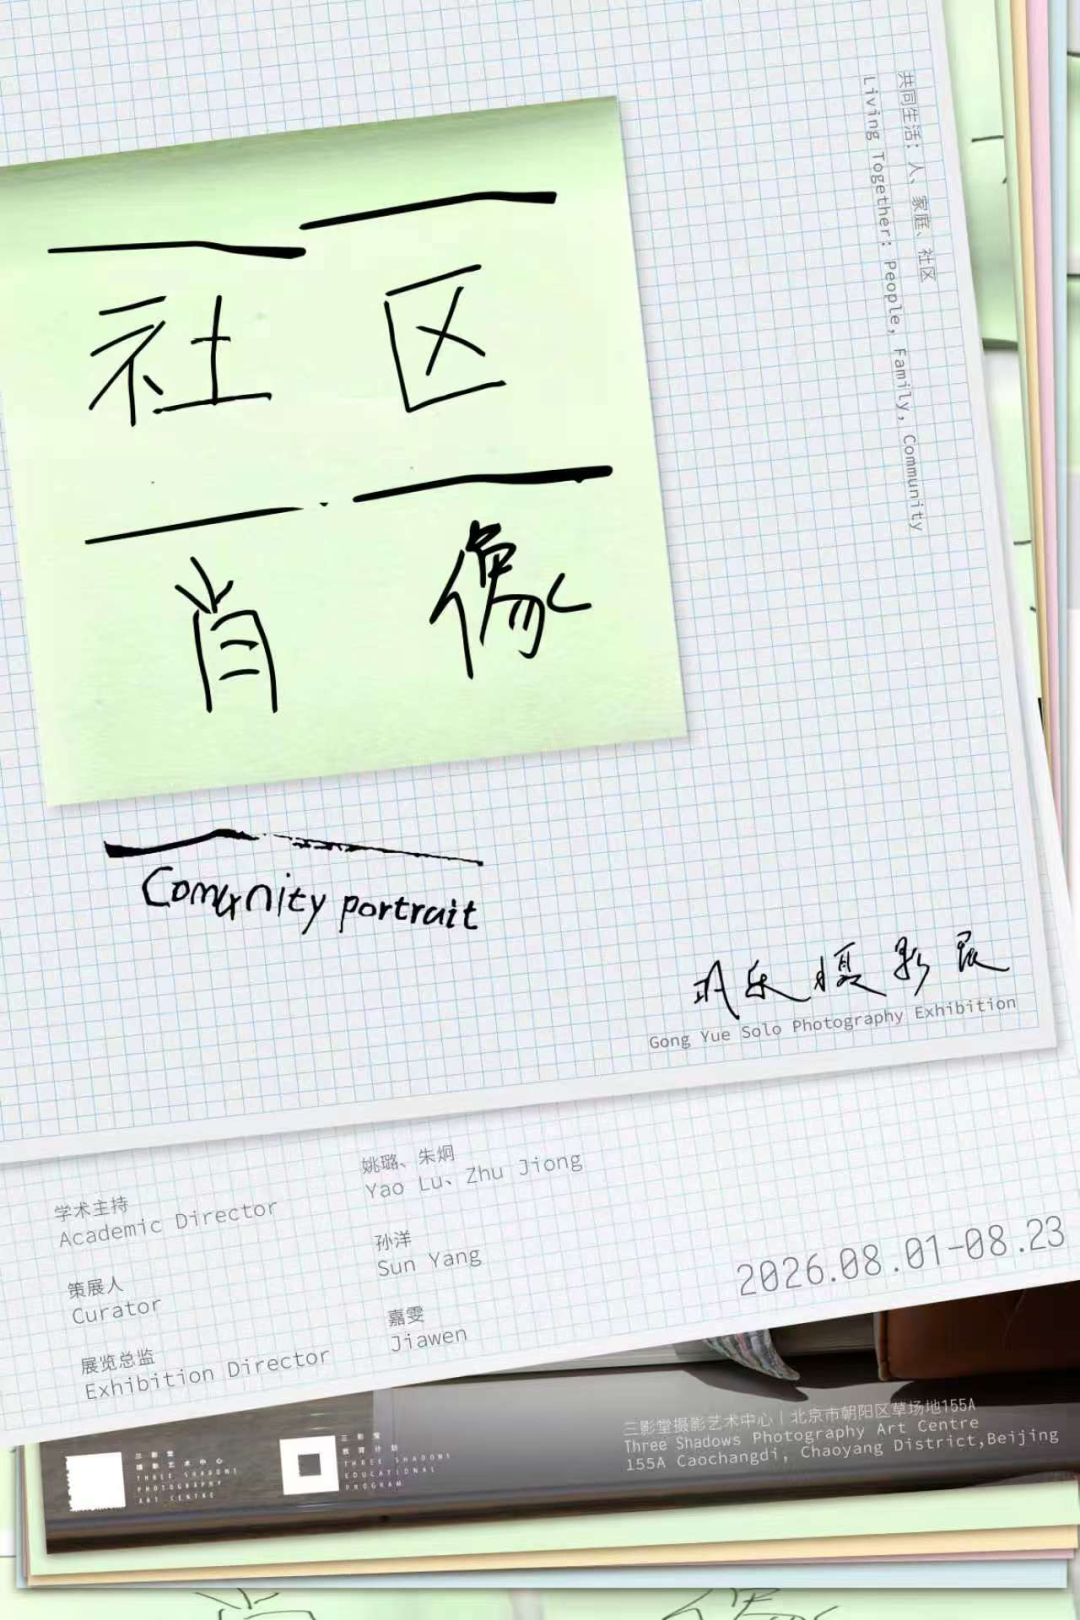 共同生活：人、家庭、社区
Living Together: People, Family, Community
社 区
肖 像
Comunity portrait
摄影展
Gong Yue Solo Photography Exhibition
学术主持
Academic Director
姚璐、朱炯
Yao Lu、Zhu Jiong
策展人
Curator
孙洋
Sun Yang
展览总监
Exhibition Director
嘉雯
Jiawen
2026.08.01-08.23
三影堂摄影艺术中心｜北京市朝阳区草场地155A
Three Shadows Photography Art Centre
155A Caochangdi, Chaoyang District,Beijing
三影堂
摄影艺术中心
THREE SHADOWS
PHOTOGRAPHY
ART CENTRE
三影堂
教育计划
THREE SHADOWS
EDUCATIONAL
PROGRAM